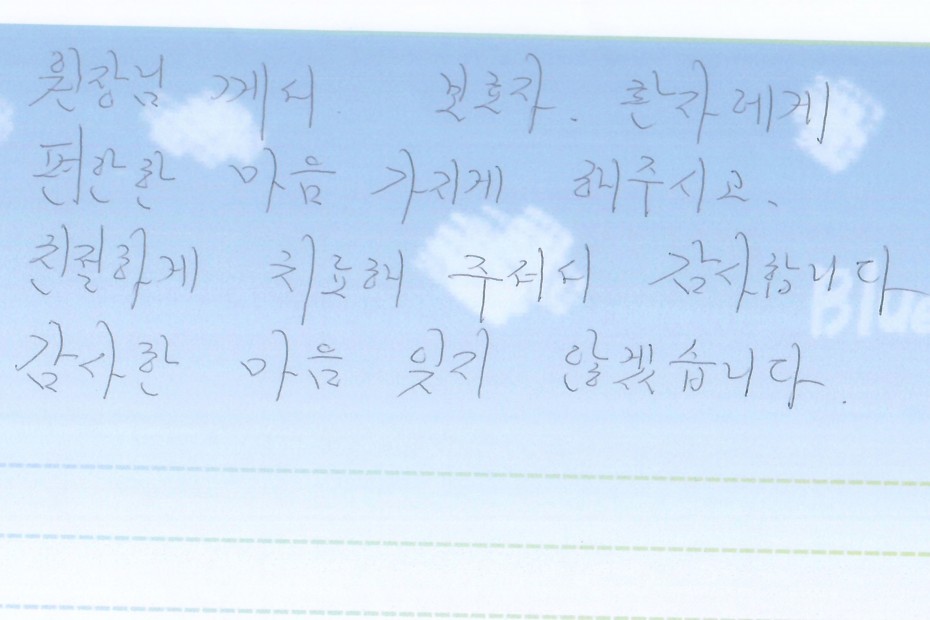 원장님 께서 보호자. 환자에게
편안한 마음 가지게 해주시고.
친절하게 치료해 주셔서 감사합니다
Blue
감사한 마음 잊지 않겠습니다.